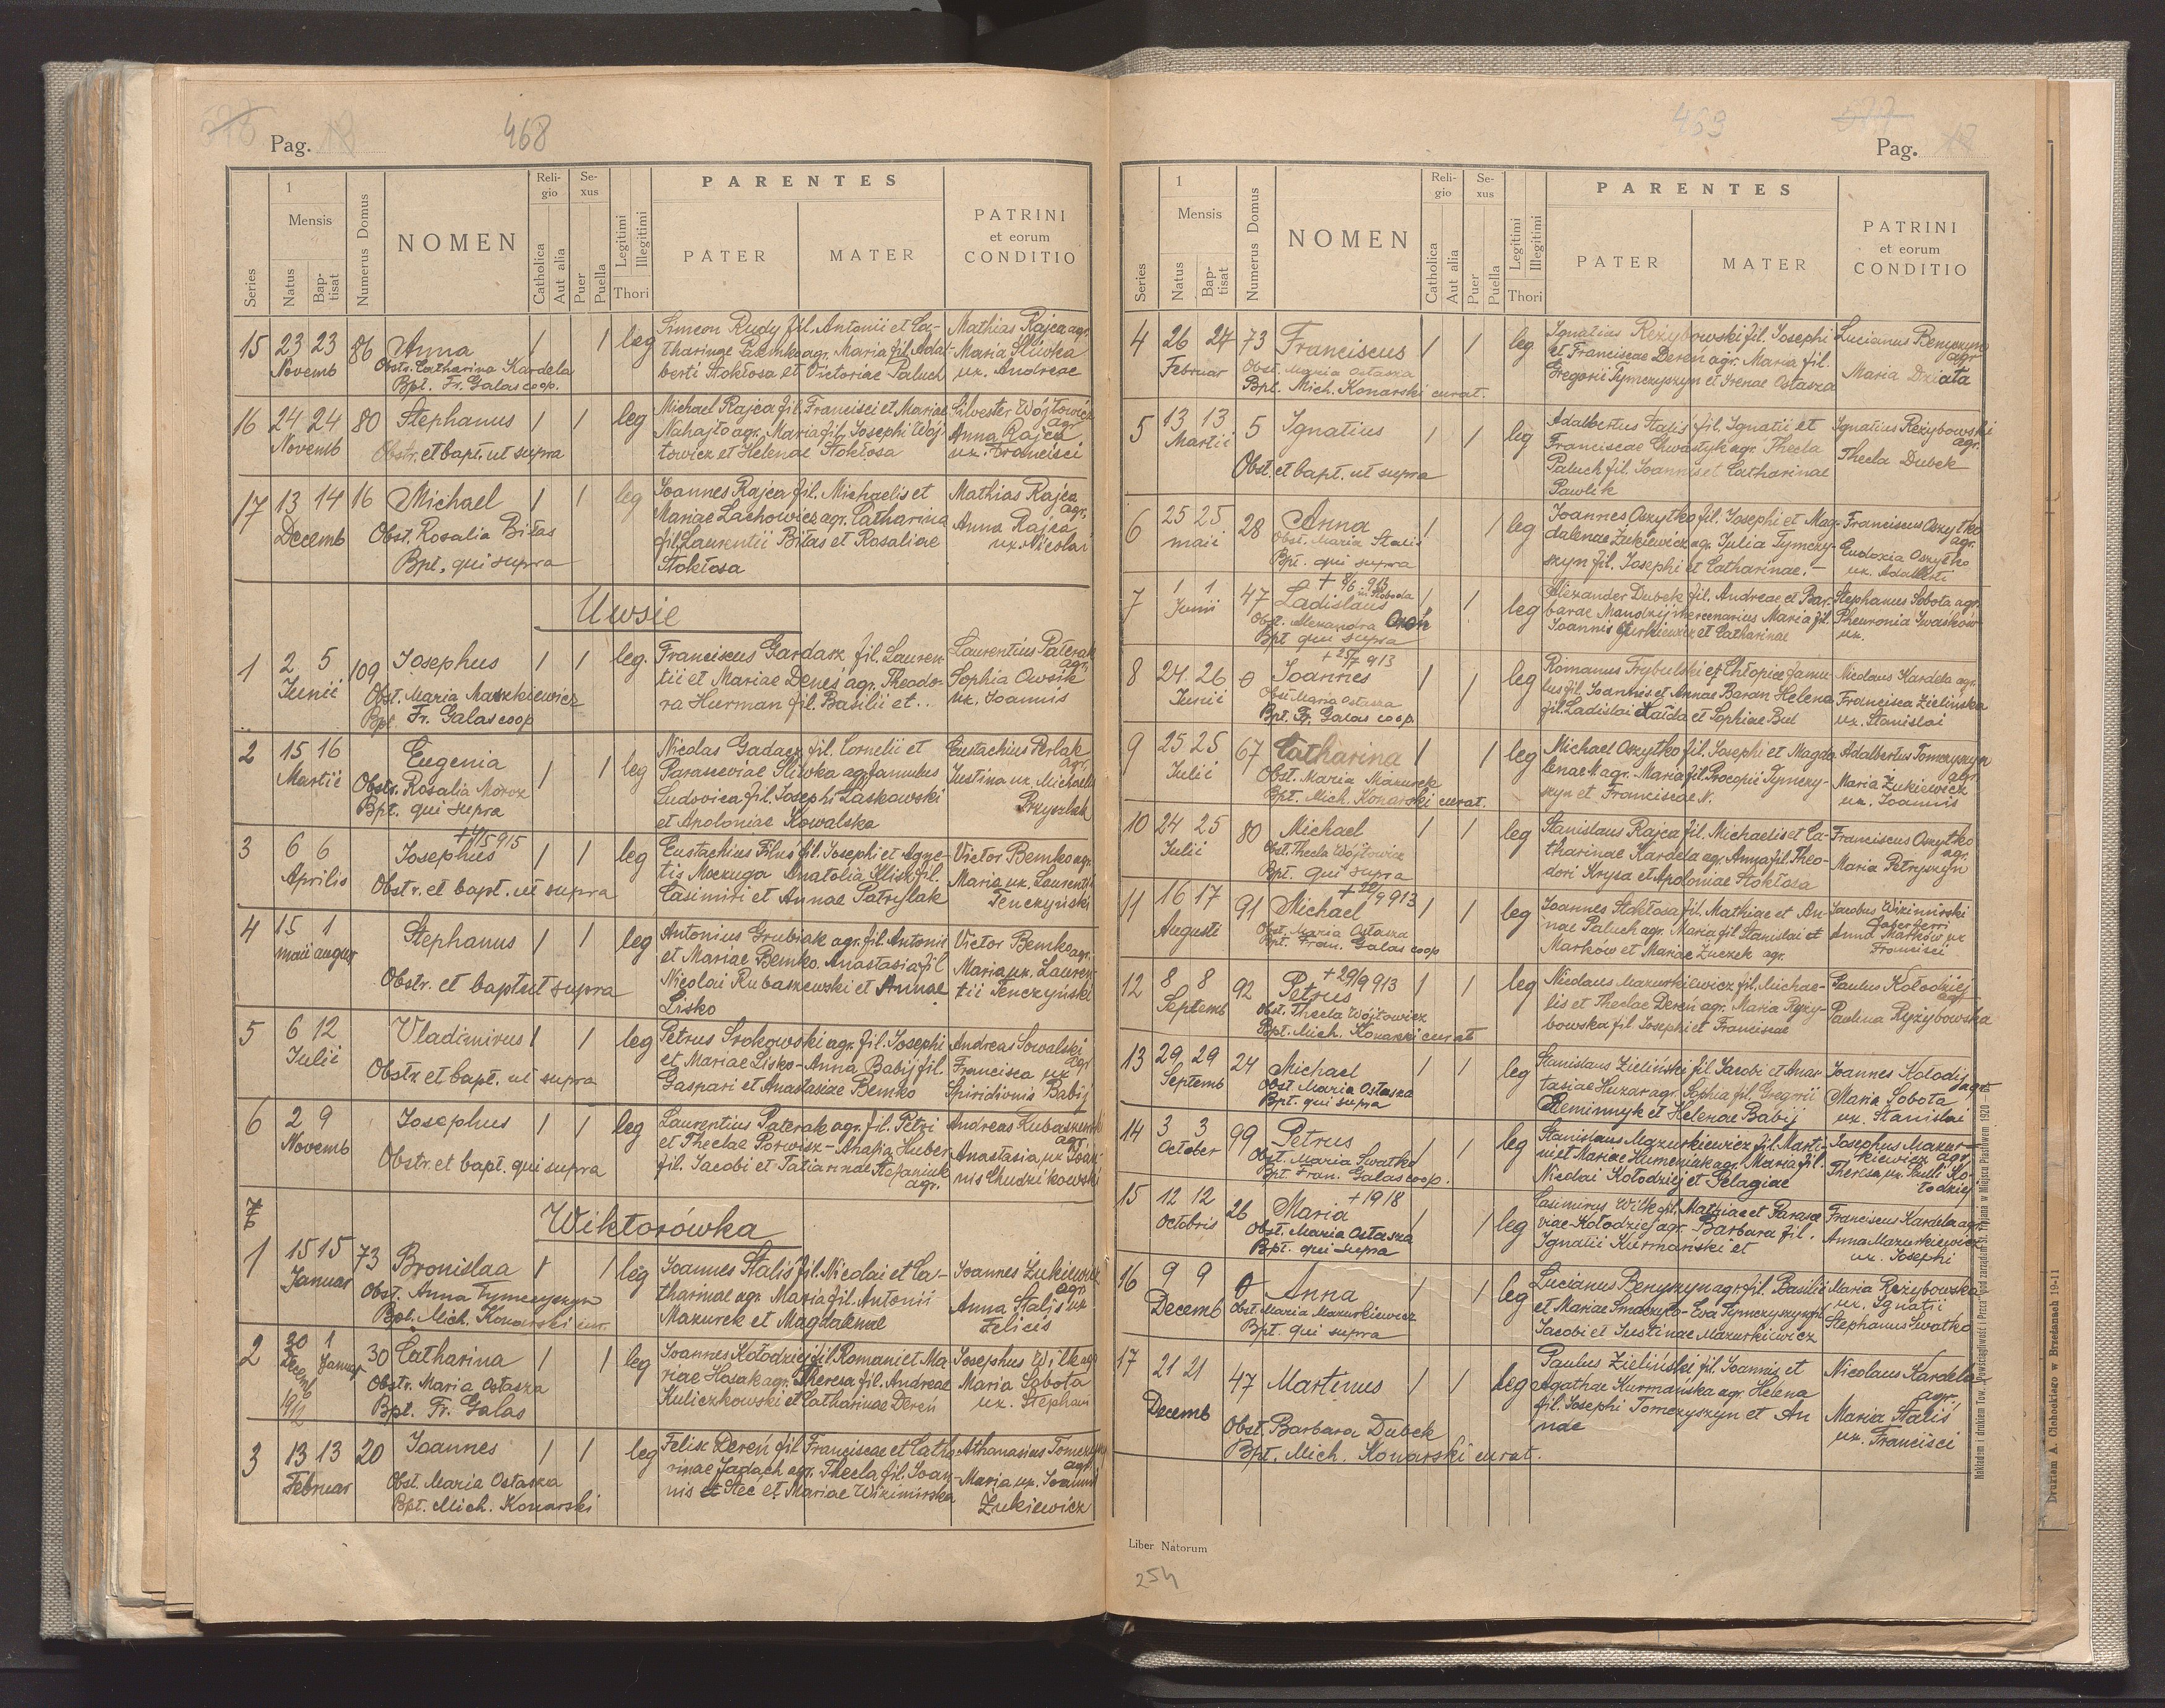 Pag. 18
468
Series
1
Mensis
Natus
Baptisat
Numerus Domus
NOMEN
Religio
Catholica
Aut alia
Sexus
Puer
Puella
Legitimi
Illegitimi
Thori
PARENTES
PATER
MATER
PATRINI
et eorum
CONDITIO
15 23 23 86 Anna 1 1 leg
Novemb
Obstr. Catharina Kardela
Bpt. Fr. Galas coop.
Simeon Rudy fil. Antonii et Ca-
tharinae Paemko agr. Maria fil. Adal-
berti Stokłosa et Victoriae Paluch
Mathias Rajca agr.
Maria Śliwka
ux. Andreae
16 24 24 80 Stephanus 1 1 leg
Novemb
Obstr. et bapt. ut supra
Michael Rajca fil. Francisci et Mariae
Nahajło agr. Maria fil. Josephi Wój
towicz et Helenae Stokłosa
Silvester Wójtowicz
agr
Anna Rajca
ux. Francisci
17 13 14 16 Michael 1 1 leg
Decemb
Obst. Rosalia Biłas
Bpt. qui supra
Joannes Rajca fil. Michaelis et
Mariae Lachowicz agr. Catharina
fil. Laurentii Biłas et Rosaliae
Stokłosa
Mathias Rajca
agr.
Anna Rajca
ux. Nicolai
Uwsie
1 2 5 109 Josephus 1 1 leg.
Junii
Obst. Maria Maszkiewicz
Bpt. Fr. Galas coop
Franciscus Gardasz fil. Lauren
tii et Mariae Denes agr. Theodo-
ra Hurman fil. Basilii et ..
Laurentius Paterak
agr.
Sophia Owsik
ux. Joannis
2 15 16 Eugenia 1 1 leg
Martii
Obstr. Rosalia Moroz
Bpt. qui supra
Nicolas Gadacz fil. Cornelii et
Parasceviae Śliwka agr famulus
Ludovica fil. Josephi Laskowski
et Apoloniae Kowalska
Eustachius Perlak
agr.
Justina ux. Michaelis
Przyszlak
3 6 6 Josephus 1 1 leg
Aprilis
Obstr. et bapt. ut supra
Eustachius Filus fil. Josephi et Agne-
tis Moczuga Anatolia Klisz fil.
Casimiri et Annae Patrylak
Victor Bemko agr.
Maria ux. Laurentii
Tenczyński
4 15 1 Stephanus 1 1 leg
maii august
Obstr. et bapt ut supra
Antonius Grubiak agr. fil. Antonii
et Mariae Bemko. Anastasia fil
Nicolai Rubaszewski et Annae
Lisko
Victor Bemko agr.
Maria ux. Lauren
tii Tenczyński
5 6 12 Vladimirus 1 1 leg
Julii
Obstr. et bapt. ut supra
Petrus Srokowski agr. fil. Josephi
et Mariae Lisko - Anna Babij fil.
Gaspari et Anastasiae Bemko
Andreas Sowalski
agr
Francisca ux
Spiridionis Babij
6 2 9 Josephus 1 1 leg
Novemb
Obstr. et bapt. qui supra
Laurentius Paterak agr. fil. Petri
et Theclae Porwisz - Anafia Huber
fil. Jacobi et Tatiannae Stefaniuk
agr.
Andreas Kubaszewski
agr.
Anastasia ux Joan
nis Chudzikowski
7
Wiktorówka
1 15 15 73 Bronislaa 1 1 leg
Januar
Obst. Anna Tymczyszyn
Bpt. Mich. Konarski cur.
Joannes Stalis fil. Nicolai et Ca-
tharinae agr. Maria fil. Antonii
Mazurek et Magdalenae
Joannes Żukiewicz
agr
Anna Stalis ux
Felicis
2 20 1 30 Catharina 1 1 leg
Decemb Januar
1912
Obstr. Maria Ostasza
Bpt. Fr. Galas
Joannes Kołodziej fil. Romani et Ma
riae Hosak agr. Theresa fil. Andreae
Kuliczkowski et Catharinae Dereń
Josephus Wilk agr
Maria Sobota
ux. Stephan
3 13 13 20 Joannes 1 1 leg
Februar
Obst. Maria Ostasza
Bpt. Mich. Konarski
Felix Dereń fil Franciscae et Catha
rinae Jadach agr. Thecla fil. Joan-
nis et Stec et Mariae Wikimirska
Athanasius Tomczyszyn
agr.
Maria ux. Joannis
Żukiewicz
469
Pag. 18
Series
1
Mensis
Natus
Baptisat
Numerus Domus
NOMEN
Religio
Catholica
Aut alia
Sexus
Puer
Puella
Legitimi
Illegitimi
Thori
PARENTES
PATER
MATER
PATRINI
et eorum
CONDITIO
4 26 27 73 Franciscus 1 1 leg
Februar
Obst. Maria Ostasza
Bpt. Mich. Konarski curat.
Ignatius Rezybowski fil. Josephi
et Franciscae Dereń agr. Maria fil.
Gregorii Tymczyszyn et Irenae Ostasza
Lucianus Benyszyn
agr
Maria Działa
5 13 13 5 Ignatius 1 1 leg
Martii
Obst. et bapt. ut supra
Adalbertus Stalis fil. Ignatii et
Franciscae Chwastyk agr. Thecla
Paluch fil. Joannis et Catharinae
Pawlik
Ignatius Rezybowski
agr.
Thecla Dubek
6 25 25 28 Anna 1 1 leg
maii
Obst. Maria Stalis
Bpt. qui supra
Joannes Oszytko fil. Josephi et Mag-
dalenae Żukiewicz agr. Julia Tymczy-
szyn fil. Josephi et Catharinae. -
Franciscus Oszytko
agr.
Eudoxia Oszytko
ux. Adalberti
7 1 1 47 Ladislaus 1 1 leg
Junii
+ 8/6 913
in Słoboda
Obst. Alexandra Oroń
Bpt qui supra
Alexander Dubek fil. Andreae et Bar-
barae Mandzij mercenarius Maria fil.
Joannis Gurkiewicz et Catharinae
Stephanus Sobota agr.
Pheuronia Iwaśków
ux.
8 24 26 0 Joannes 1 1 leg
Junii
+ 25/7 913
Obst Maria Ostasza
Bpt. Fr. Galas coop
Romanus Trybulski et Chłopice famu
lus fil. Joannis et Annae Baran Helena
fil. Ladislai Łajda et Sophiae Bul
Nicolaus Kardela agr.
Francisca Zielińska
ux. Stanislai
9 25 25 67 Catharina 1 1 leg
Julii
Obst. Maria Mazurek
Bpt. Mich. Konarski curat.
Michael Oszytko fil. Josephi et Magda
lenae N. agr. - Maria fil. Procopii Tymczy-
szyn et Franciscae N.
Adalbertus Tomczyszyn
agr
Maria Żukiewicz
ux. Joannis
10 24 25 80 Michael 1 1 leg
Julii
Obst. Thecla Wójtowicz
Bpt. qui supra
Stanislaus Rajca fil. Michaelis et Ca-
tharinae Kardela agr. Anna fil. Theo-
dori Krysa et Apoloniae Stokłosa
Franciscus Oszytko
agr.
Maria Petryszyn
11 16 17 91 Michael 1 1 leg
Augusti
+ 22/9 913
Obst. Maria Ostasza
Bpt. Fran. Galas coop
Joannes Stokłosa fil. Mathiae et An-
nae Paluch agr. Maria fil Stanislai et
Marków et Mariae Zuczek agr.
Jacobus Wikimirski
faber ferri
Anna Marków ux
Francisci
12 8 8 92 Petrus 1 1 leg
Septemb
+ 29/9 913
Obst. Thecla Wójtowicz
Bpt. Mich. Konarski curat
Nicolaus Mazurkiewicz fil. Michae-
lis et Theclae Dereń agr. Maria Ryzy-
bowska fil Josephi et Franciscae
Paulus Kołodziej
agr
Paulina Ryzybowska
13 29 29 24 Michael 1 1 leg
Septemb
Obst Maria Ostasza
Bpt. qui supra
Stanislaus Zieliński fil Jacobi et Anas
tasiae Huzar agr. Sophia fil. Gregorii
Oleminnyk et Helenae Babij
Joannes Kołodij
agr.
Maria Sobota
ux. Stanislai
14 3 3 99 Petrus 1 1 leg
October
Obst. Maria Swatko
Bpt. Fran. Galas coop.
Stanislaus Mazurkiewicz fil. Marti-
ni et Mariae Humeniuk agr. Maria fil.
Nicolai Kołodziej et Pelagiae
Josephus Mazur-
kiewicz agr.
Theresa ux. Pauli Ko
łodziej
15 12 12 26 Maria 1 1 leg
Octobris
+ 1918
Obst. Maria Ostasza
Bpt. qui supra
Casimirus Wilk fil. Mathiae et Parasce
viae Kołodziej agr. Barbara fil.
Ignatii Kurmański et
Franciscus Kardela agr.
Anna Mazurkiewicz
ux. Josephi
16 9 9 0 Anna 1 1 leg
Decemb
Obst. Maria Mazurkiewicz
Bpt. qui supra
Lucianus Benyszyn agr fil. Basilii
et Mariae Smaczyło - Eva Tymczyszyn fil
Jacobi et Justinae Mazurkiewicz
Maria Rezybowska
ux. Ignatii
Stephanus Swatko
17 21 21 47 Martinus 1 1 leg
Decemb
Obst. Barbara Dubek
Bpt. Mich. Konarski curat.
Paulus Zieliński fil. Joannis et
Agathae Kurmańska agr Helena
fil. Josephi Tomczyszyn et An
nae
Nicolaus Kardela
agr.
Maria Stalis
ux. Francisci
Liber Natorum
254
Nakładem i drukiem Tow. „Powściągliwość i Praca" pod zarządem St. Krajana w Miejscu Piastowem 1920
Drukiem A. Cichockiego w Brzeżanach 19-11